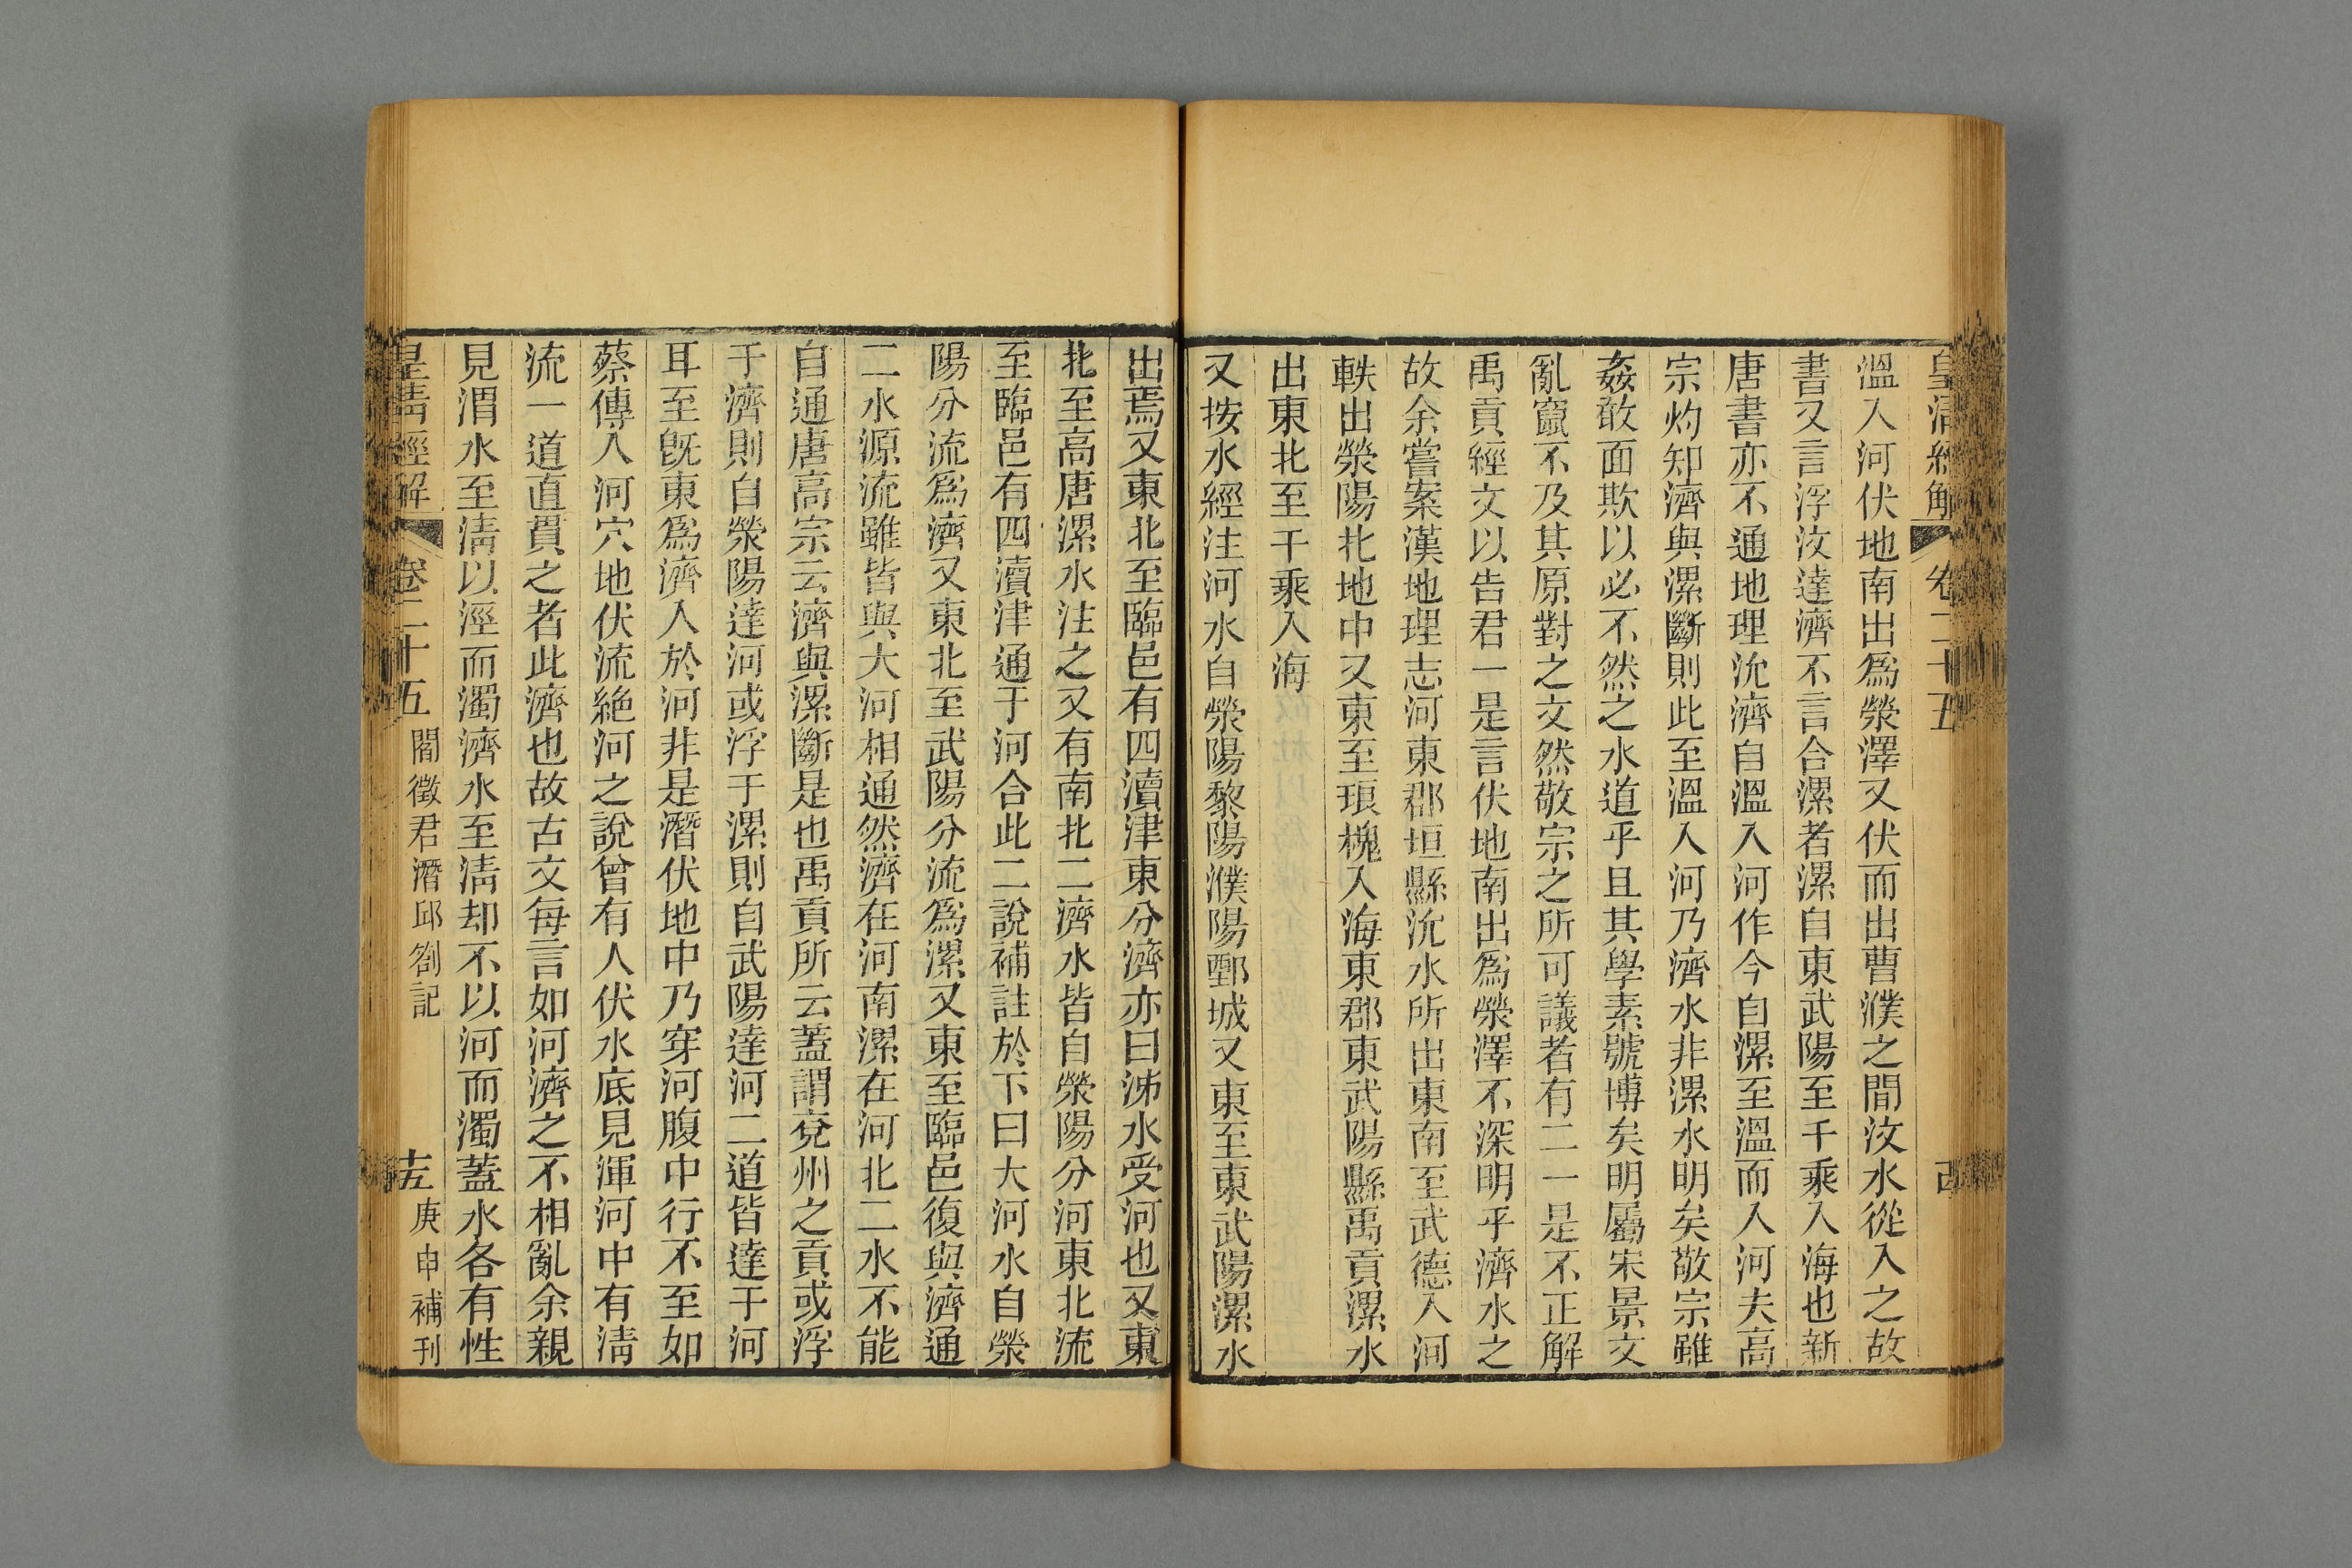 皇清經解 卷二十五
溫入河伏地南出爲滎澤又伏而出曹濮之間汶水從入之故
書又言浮汶達濟不言合漯者漯自東武陽至千乘入海也新
唐書亦不通地理沇濟自溫入河作今自漯至溫而入河夫高
宗灼知濟與漯斷則此至溫入河乃濟水非漯水明矣敬宗雖
姦敢面欺以必不然之水道乎且其學素號博矣明屬宋景文
亂竄不及其原對之文然敬宗之所可議者有二一是不正解
禹貢經文以告君一是言伏地南出爲滎澤不深明乎濟水之
故余嘗案漢地理志河東郡垣縣沇水所出東南至武德入河
軼出滎陽北地中又東至琅槐入海東郡東武陽縣禹貢漯水
出東北至千乘入海
又按水經注河水自滎陽黎陽濮陽鄄城又東至東武陽漯水
出焉又東北至臨邑有四瀆津東分濟亦曰泲水受河也又東
北至高唐漯水注之又有南北二濟水皆自滎陽分河東北流
至臨邑有四瀆津通于河合此二說補註於下曰大河水自滎
陽分流爲濟又東北至武陽分流爲漯又東至臨邑復與濟通
二水源流雖皆與大河相通然濟在河南漯在河北二水不能
自通唐高宗云濟與漯斷是也禹貢所云蓋謂兗州之貢或浮
于濟則自滎陽達河或浮于漯則自武陽達河二道皆達于河
耳至旣東爲濟入於河非是潛伏地中乃穿河腹中行不至如
蔡傳入河穴地伏流絶河之說曾有人伏水底見渾河中有淸
流一道直貫之者此濟也故古文每言如河濟之不相亂余親
見渭水至淸以涇而濁濟水至淸却不以河而濁蓋水各有性
皇淸經解 卷二十五 閻徵君潛邱劄記 十五 庚申補刊